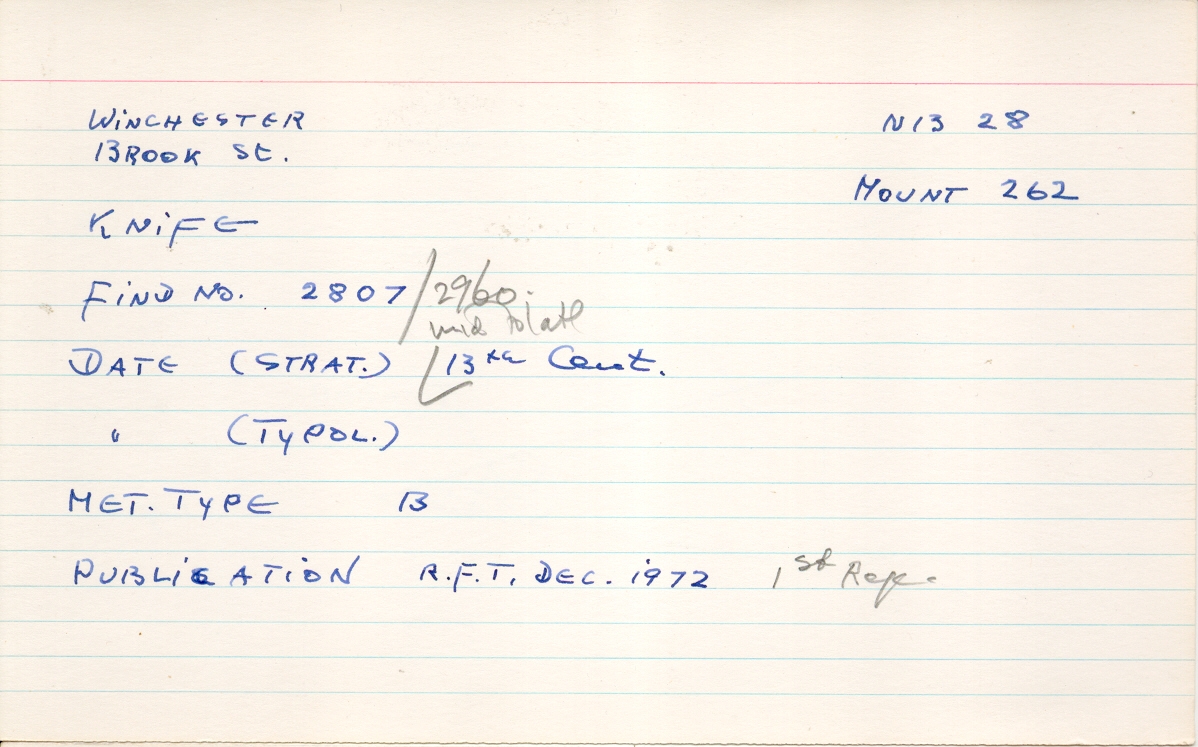 WiNCHESTER NB 28
BROOK St.
MOUNT 262
KNiFE
FiND No. 2807 / 2960.
mid to late
DATE (STRAT.) 13th Cent.
" (TYPOL.)
MET. TYPE B
PUBLiCATiON R.F.T. DEC. 1972 1st Rep.